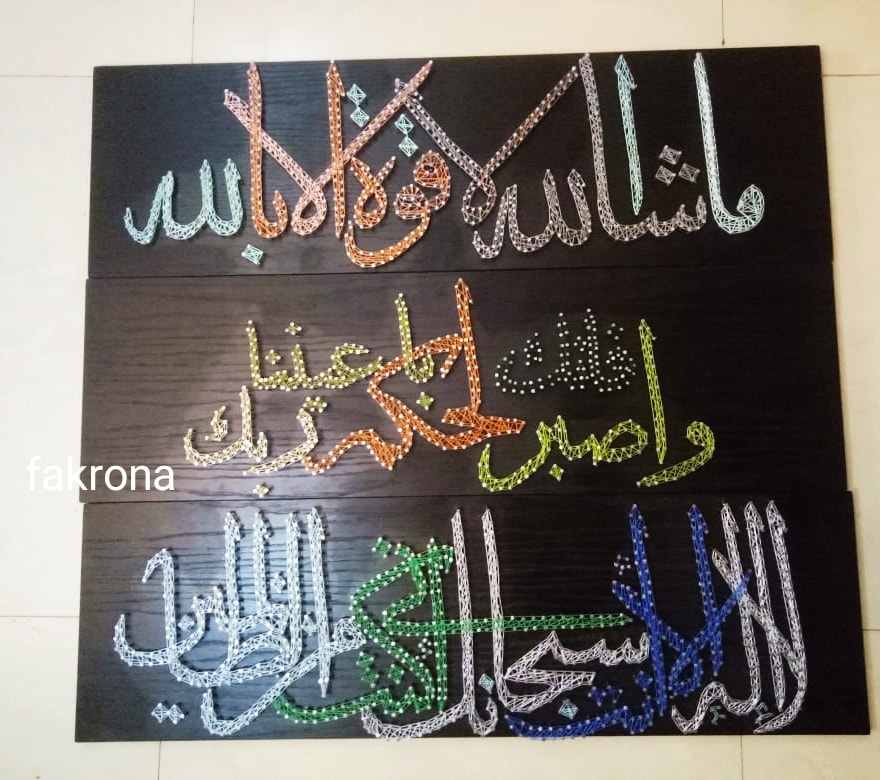 ما شاء الله لا قوة إلا بالله
واصبر لحكم ربك فإنك بأعيننا
لا إله إلا أنت سبحانك إني كنت من الظالمين
fakrona